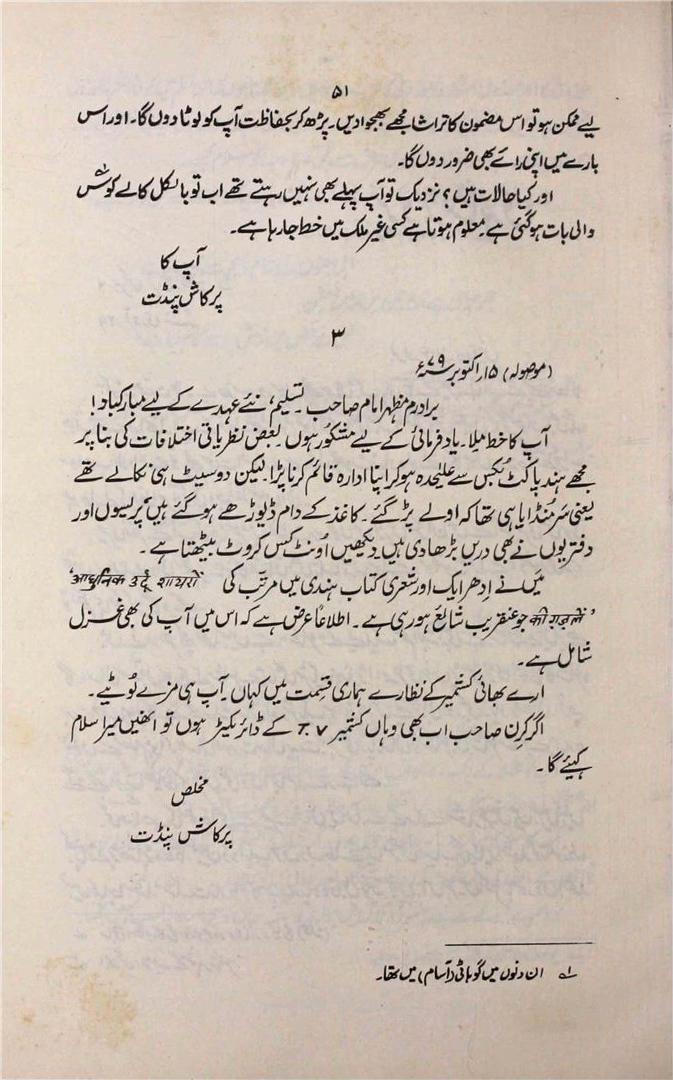 ۵۱
لیے ممکن ہو تو اس مضمون کا تراشا مجھے بھجوا دیں۔ پڑھ کر بحفاظت آپ کو لوٹا دوں گا۔ اور اس
بارے میں اپنی رائے بھی ضرور دوں گا۔
اور کیا حالات ہیں؟ نزدیک تو آپ پہلے بھی نہیں رہتے تھے اب تو بالکل کالے کوس ؎۱
والی بات ہو گئی ہے۔ معلوم ہوتا ہے کسی غیر ملک میں خط جا رہا ہے۔
آپ کا
پرکاش پنڈت
۳
(موصولہ) ۱۵؍ اکتوبر ۷۹ء
برادرم مظہر امام صاحب۔ تسلیم، نئے عہدے کے لیے مبارکباد!
آپ کا خط ملا۔ یاد فرمائی کے لیے مشکور ہوں۔ بعض نظریاتی اختلافات کی بنا پر
مجھے ہند پاکٹ بُکس سے علیحدہ ہو کر اپنا ادارہ قائم کرنا پڑا۔ لیکن دو سیٹ ہی نکالے تھے
یعنی سر مُنڈایا ہی تھا کہ اولے پڑ گئے۔ کاغذ کے دام ڈیوڑھے ہو گئے ہیں، پریسوں اور
دفتریوں نے بھی دریں بڑھا دی ہیں۔ دیکھیں اُونٹ کس کروٹ بیٹھتا ہے۔
میں نے اِدھر ایک اور شعری کتاب ہندی میں مرتّب کی 'आधुनिक उर्दू शायरों
की ग़ज़लें' جو عنقریب شائع ہو رہی ہے۔ اطلاعاً عرض ہے کہ اس میں آپ کی بھی غزل
شامل ہے۔
ارے بھائی کشمیر کے نظارے ہماری قسمت میں کہاں۔ آپ ہی مزے لُوٹیے۔
اگر کرن صاحب اب بھی وہاں کشمیر T.V کے ڈائریکٹر ہوں تو انھیں میرا سلام
کہئے گا۔
مخلص
پرکاش پنڈت
؎۱ ان دنوں میں گوہاٹی (آسام) میں تھا۔